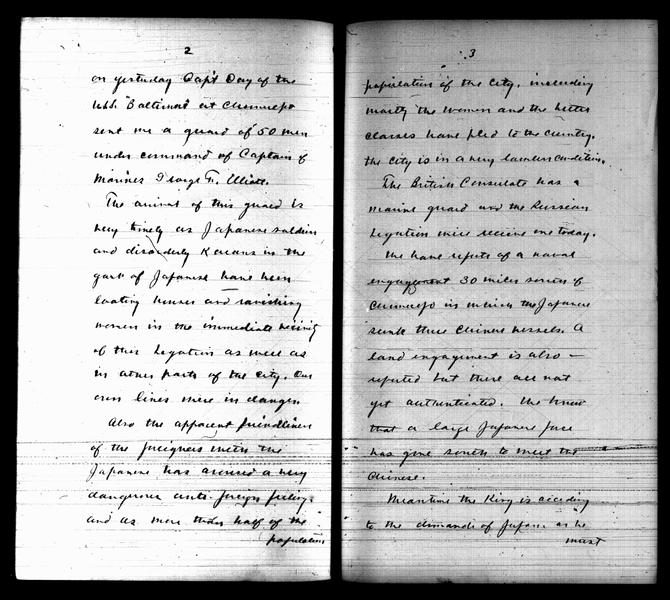 2
on yesterday Capt Day of the
U.S.S. "Baltimore" at Chemulpo
sent me a guard of 50 men
under command of Captain of
Marines George F. Elliott.
The arrival of this guard is
very timely as Japanese soldiers
and disorderly Koreans in the
garb of Japanese have been
looting houses and ravishing
women in the immediate vicinity
of this Legation as well as
in other parts of the city. Our
own lines were in danger.
Also the apparent friendliness
of the foreigners with the
Japanese has aroused a very
dangerous anti-foreign feeling.
and as more than half of the
population
3
population of the city, including
mostly the women and the better
classes have fled to the country.
the city is in a very lawless condition.
The British Consulate has a
marine guard and the Russian
Legation will receive one today.
We have reports of a naval
engagement 30 miles south of
Chemulpo in which the Japanese
sunk three Chinese vessels. A
land engagement is also —
reported but these are not
yet authenticated. We know
that a large Japanese force
has gone south to meet the
Chinese.
Meantime the King is acceding
to the demands of Japan as he
must